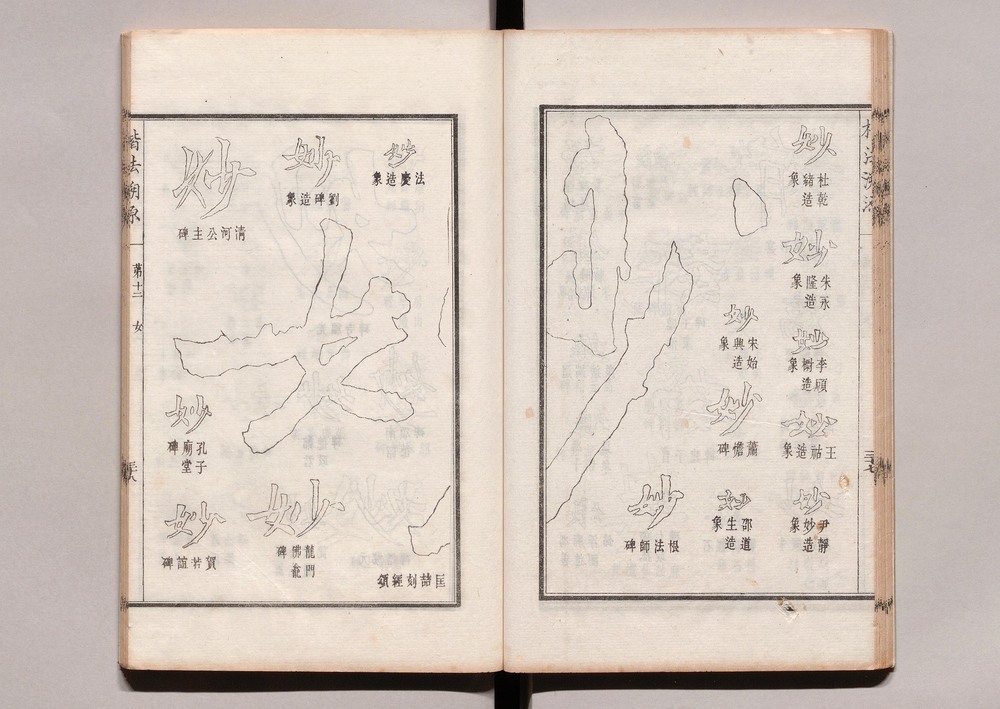 楷法溯源
三十七
妙
杜乾
緒造
象
妙
朱永
隆造
象
妙
造
象
妙
王祜造象
妙
尹靜
妙造
象
妙
宋始
興造
象
妙
蕭憺碑
妙
邵道
生造
象
妙
根法師碑
妙
匡喆刻經頌
妙
法慶造象
妙
劉碑造象
妙
龍門
佛龕
碑
妙
清河公主碑
妙
孔子
廟堂
碑
妙
賀若誼碑
楷法溯源
第十二
女
三十八